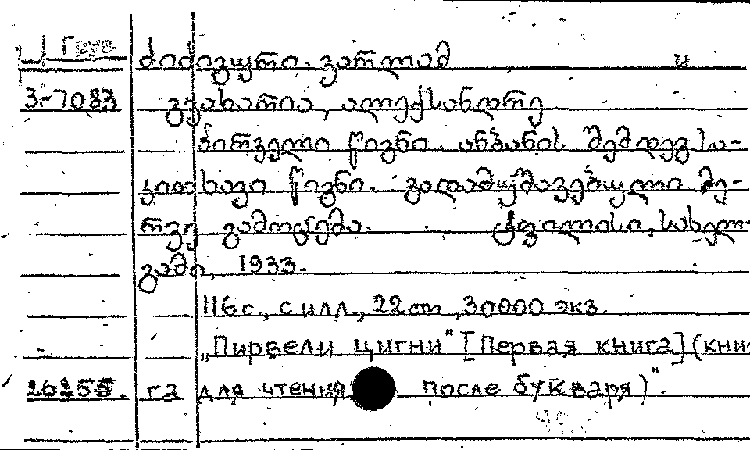 Груз
ძიძიგური, ვარლამ и
3-7083 გვახარია, ალექსანდრე
პირველი წიგნი. ანბანის შემდეგ სა-
კითხავი წიგნი. გადამუშავებული მე-
რვე გამოცემა. ტფილისი, სახელ-
გამი, 1933.
116 с., с илл., 22 cm, 30000 экз.
„Пирвели цигни" [Первая книга] (кни-
26255. га для чтения после букваря)".